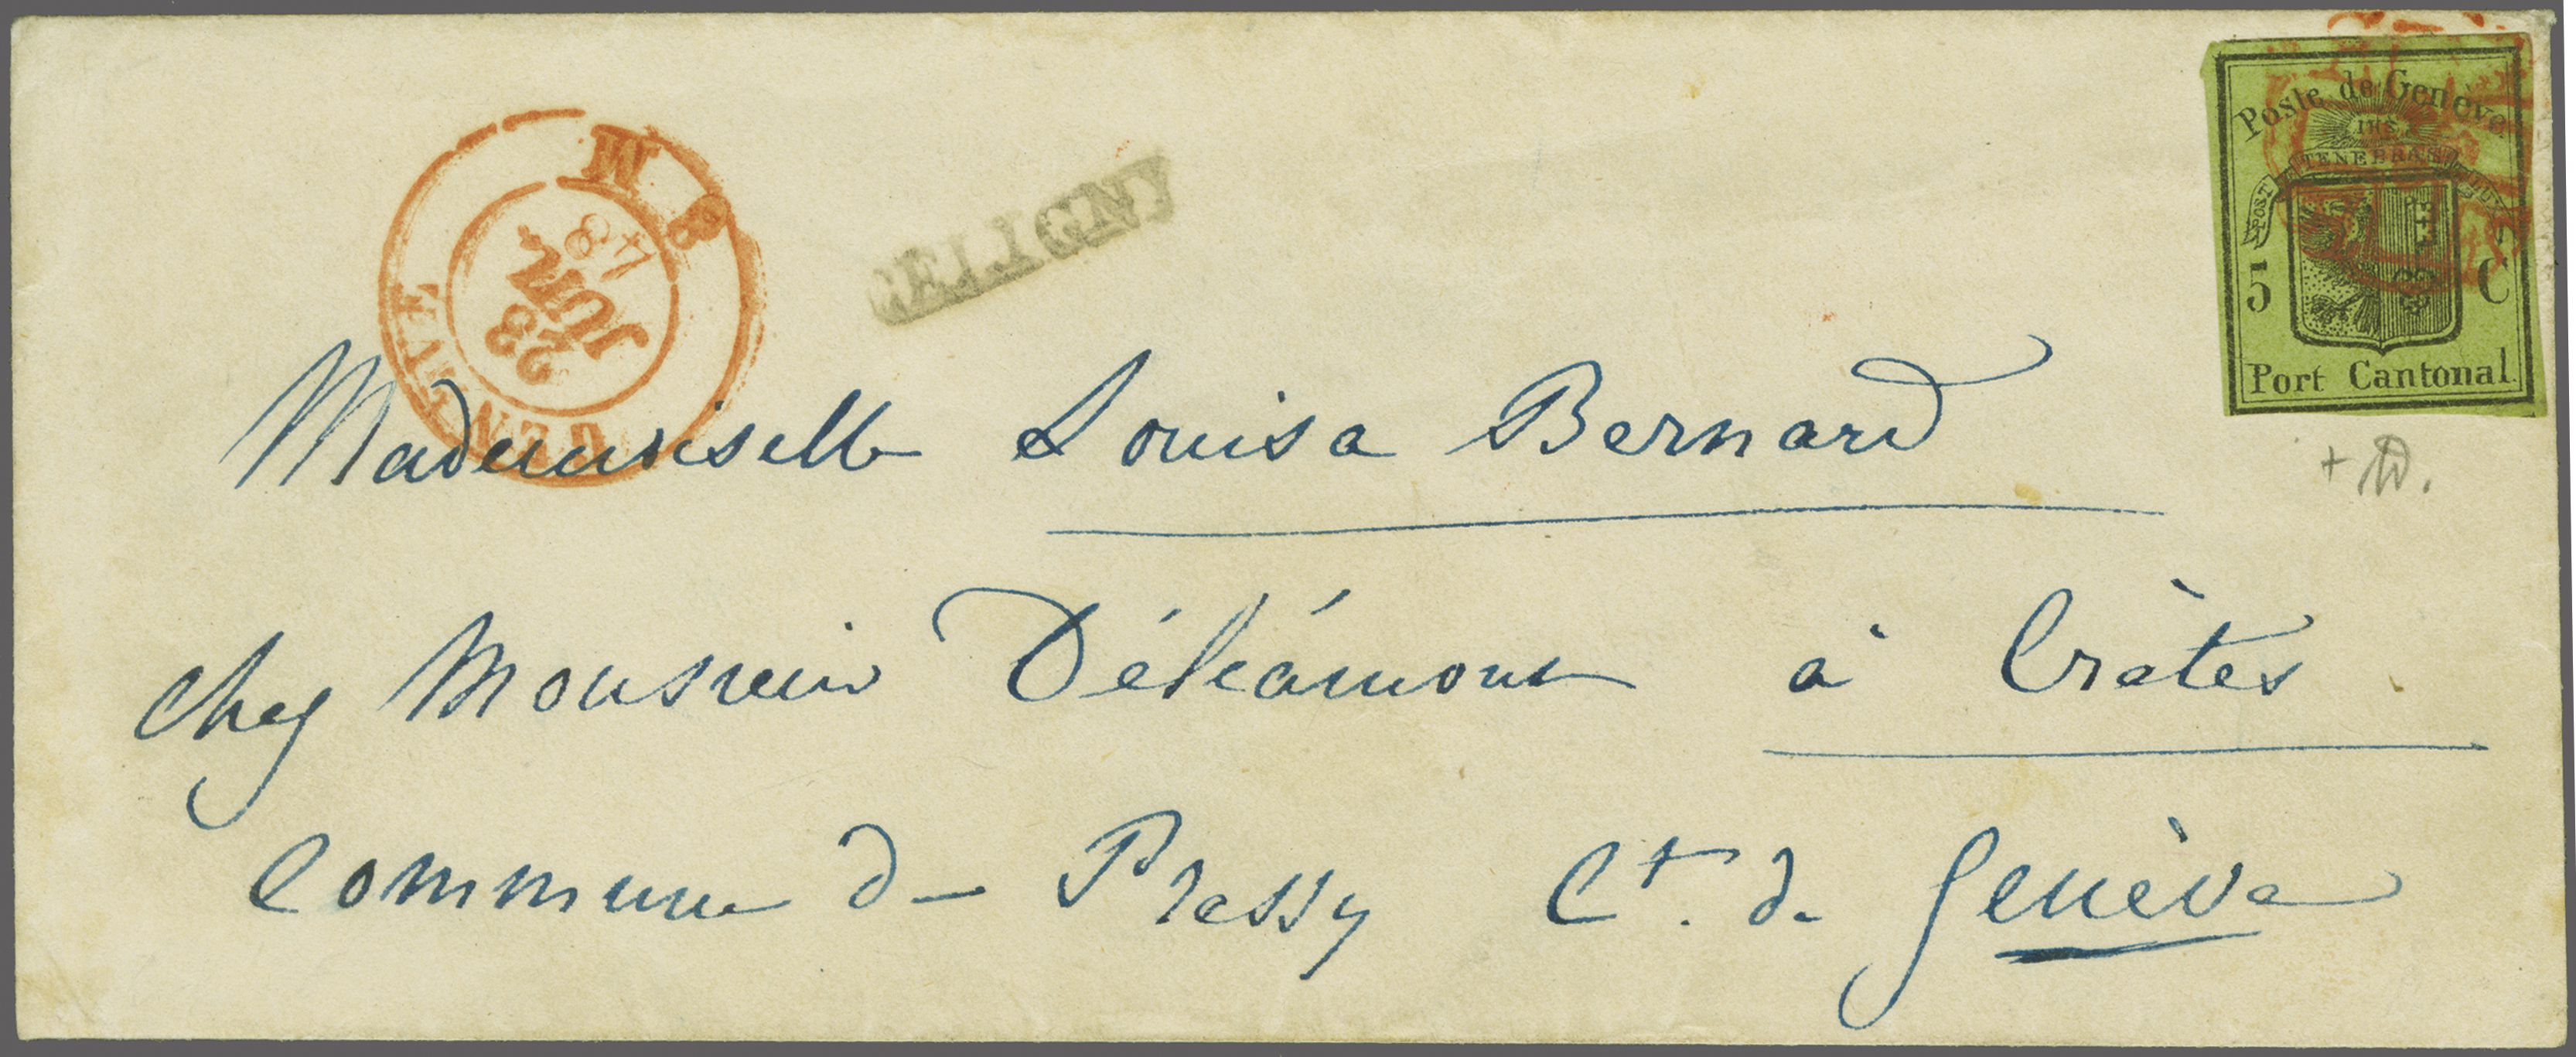 GENÈVE
23
JUIN
48
M
8
CELIGNY
Poste de Genève
IHS
POST TENEBRAS LUX
5 C
Port Cantonal.
Mademoiselle Louisa Bernard
chez Monsieur à Crètes
Commune de Pressy Ct. de Genève